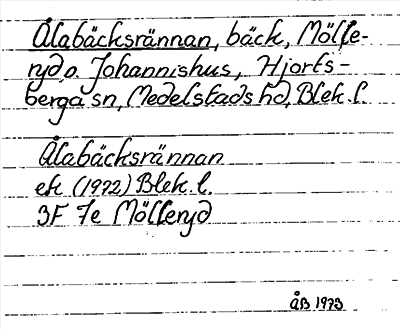 Ålabäcksrännan, bäck, Mölle-
ryd o. Johannishus, Hjorts-
berga sn, Medelstads hd, Blek. l.
Ålabäcksrännan
ek (1972) Blek. l.
3F 7e Mölleryd
ÅB 1973